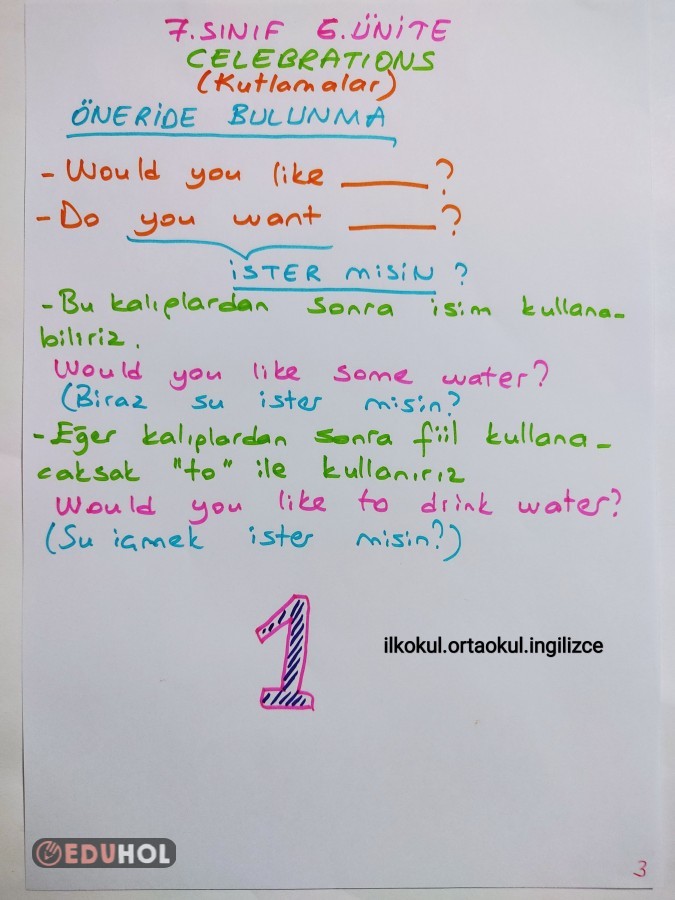 7.SINIF 6.ÜNİTE
CELEBRATIONS
(Kutlamalar)
ÖNERİDE BULUNMA
- Would you like ______?
- Do you want ______?
İSTER MİSİN ?
- Bu kalıplardan sonra isim kullana-
biliriz.
Would you like some water?
(Biraz su ister misin?
- Eğer kalıplardan sonra fiil kullana-
caksak "to" ile kullanırız
Would you like to drink water?
(Su içmek ister misin?)
1
ilkokul.ortaokul.ingilizce
EDUHOL
3